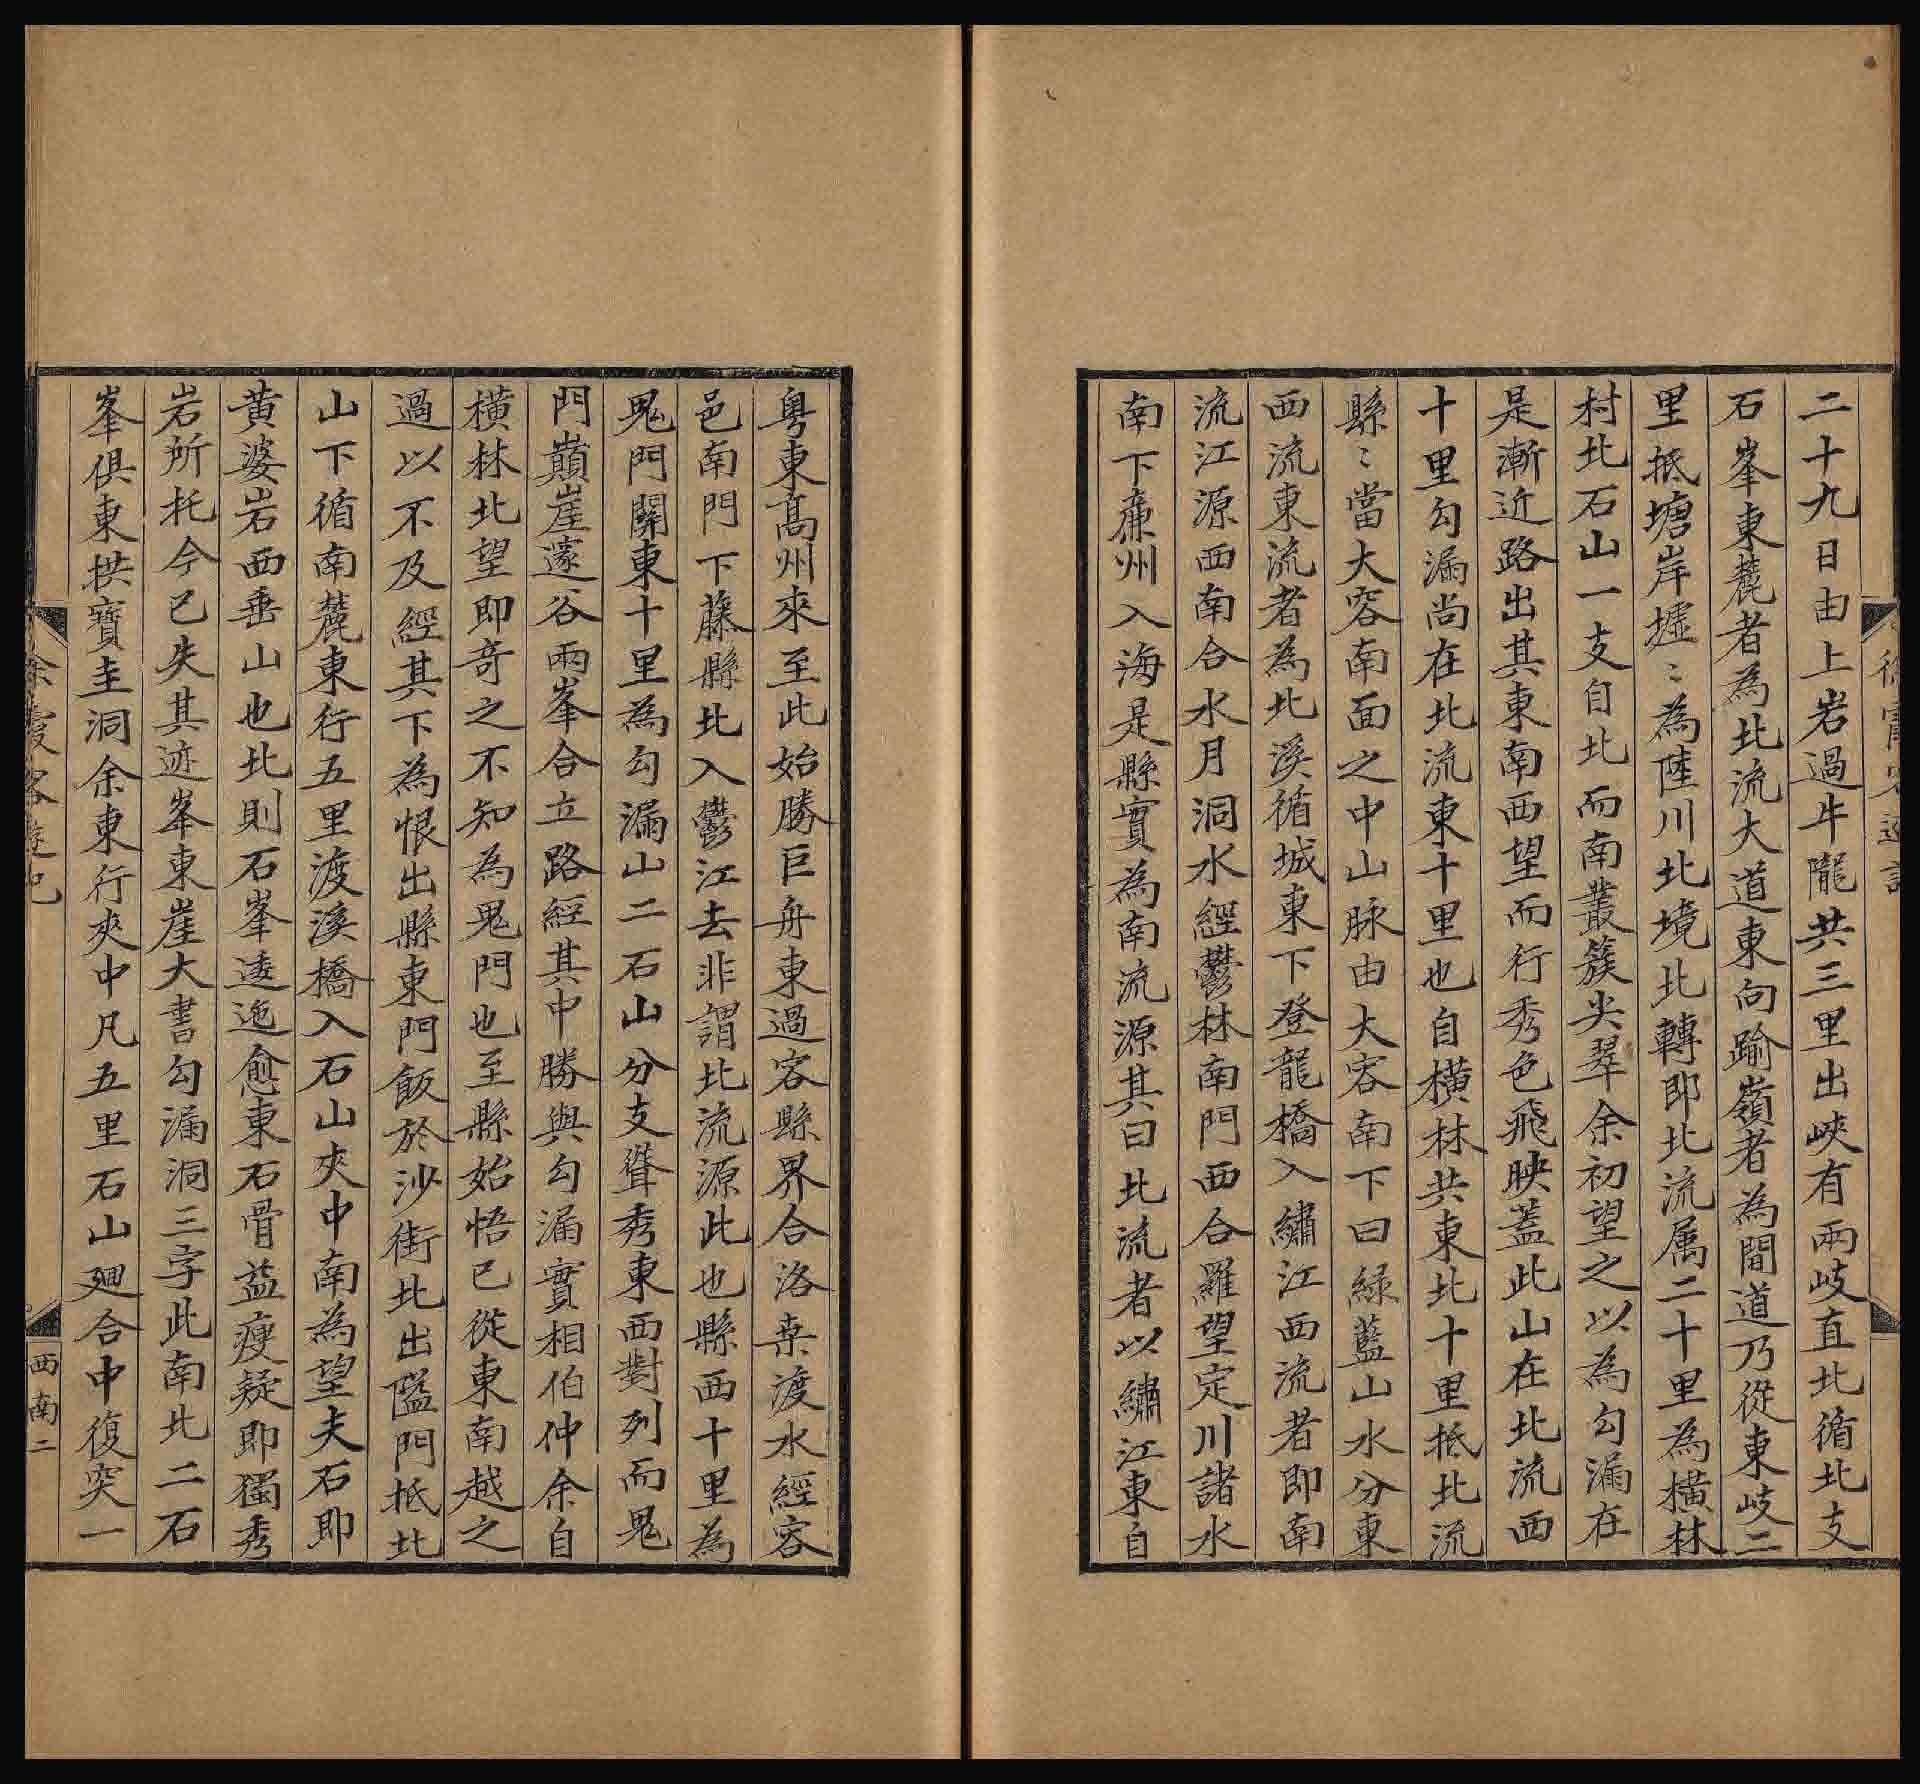 二十九日由上岩過牛隴共三里出峽有兩岐直北循北支
石峯東麓者為北流大道東向踰嶺者為間道乃從東岐二
里抵塘岸墟〻為陸川北境北轉即北流属二十里為橫林
村北石山一支自北而南叢簇尖翠余初望之以為勾漏在
是漸近路出其東南西望而行秀色飛映蓋此山在北流西
十里勾漏尚在北流東十里也自橫林共東北十里抵北流
縣〻當大容南面之中山脉由大容南下曰綠藍山水分東
西流東流者為北溪循城東下登龍橋入繡江西流者即南
流江源西南合水月洞水經鬱林南門西合羅望定川諸水
南下廉州入海是縣實為南流源其曰北流者以繡江東自
粵東高州來至此始勝巨舟東過容縣界合洛桒渡水經容
邑南門下藤縣北入鬱江去非謂北流源此也縣西十里為
鬼門關東十里為勾漏山二石山分支聳秀東西對列而鬼
門巔崖邃谷兩峯合立路經其中勝與勾漏實相伯仲余自
橫林北望即奇之不知為鬼門也至縣始悟已從東南越之
過以不及經其下為恨出縣東門飯於沙街北出隘門抵北
山下循南麓東行五里渡溪橋入石山夾中南為望夫石即
黃婆岩西垂山也北則石峯逶迤愈東石骨益瘦疑即獨秀
岩所托今已失其迹峯東崖大書勾漏洞三字此南北二石
峯俱東拱寶圭洞余東行夾中凡五里石山廻合中復突一
徐霞客遊記
西南二